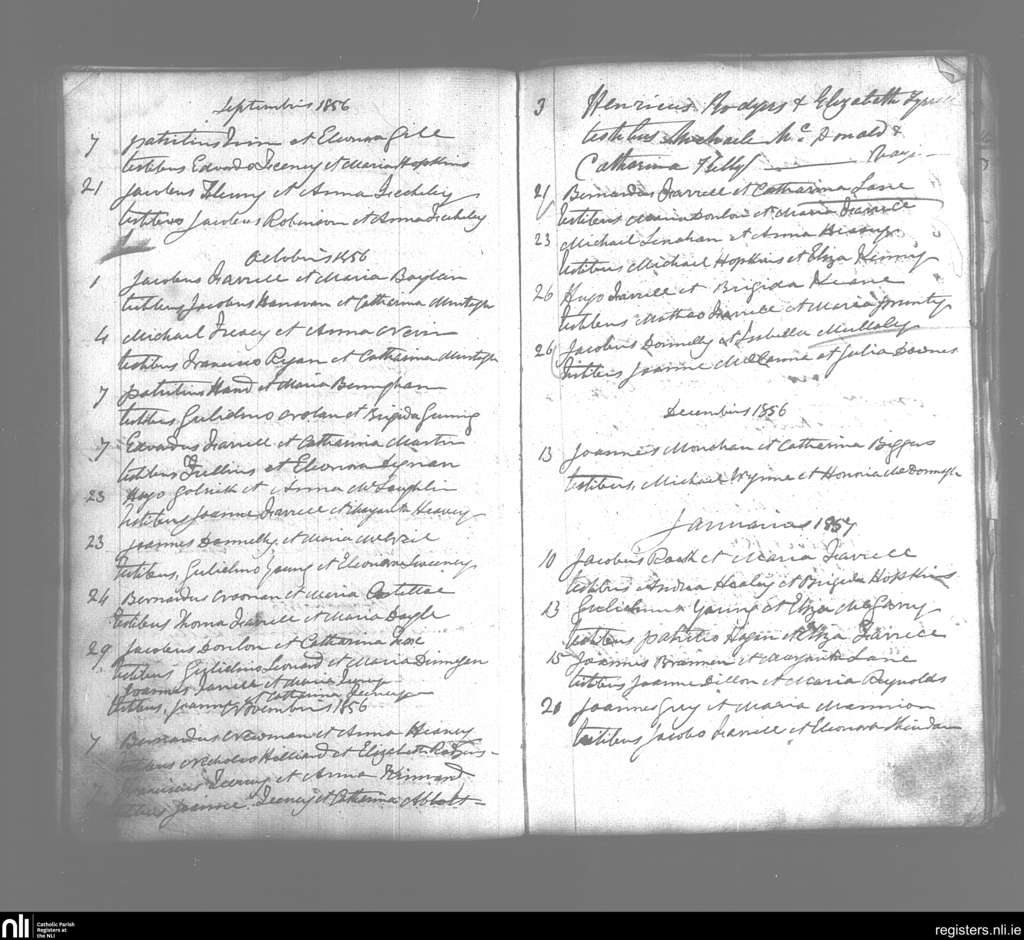 Septembris 1856
7 Patritius Finn et Eleonora Gill
testibus Edvardo Feeney et Maria Hopkins
21 Jacobus Fleury et Anna
testibus Jacobus Robinson et Anna
Octobris 1856
1 Jacobus Farrell et Maria Boylan
testibus Jacobus Hanavan et Catherina Murtagh
4 Michael et Anna
testibus Francisco Ryan et Catharina Murtagh
7 Patritius Hand et Maria Bermgham
testibus Gulielmo Nolan et Brigida Gunnig
7 Edvardus Farrell et Catharina Martin
testibus et Eleonora
23 Hugo et Anna McLoughlin
testibus Joanne Farrell et Margarita Heavey
23 Joannes Donnelly et Maria
testibus, Gulielmo Young et Eleonora Sweeney
24 Bernardus Noonan et Maria Costello
testibus Thoma Farrell et Maria Doyle
29 Jacobus Donlon et Catharina
testibus Gulielmo Leonard et Maria Dunnigan
Joannes Farrell et Maria
testibus, Joanne Catherina
Novembris 1856
7 Bernardus Newman et Anna Heaney
testibus Nicholas Holliard et Elizabeth Rodgers
7 Franciscus Feeney et Anna Kinnard
testibus Joanne Feeney et Catherina Abbott
3 Henricus Rodgers & Elizabeth
testibus Michaele McDonald &
Catharina Kelly
21 Bernardus Farrell et Catharina Lane
testibus Maria Donlon et Maria Farrell
23 Michael Linahan et Anna
testibus Michael Hopkins et Eliza Kenny
26 Hugo Farrell et Brigida Keane
testibus Mathao Farrell et Maria
26 Jacobus Donnelly et Isabella Mullaly
testibus Joanne et Julia Downes
Decembris 1856
13 Joannes Monahan et Catherina Biggus
testibus, Michael Wynne et Honoria McDonnagh
Januarius 1857
10 Jacobus et Maria Farrell
testibus Andrea Healy et Brigida Hopkins
13 Gulielmus Young et Eliza McGarry
testibus Patritio Hagan et Eliza Farrell
15 Joannis Brannan et Margarita Lane
testibus Joanne Dillon et Maria Reynolds
20 Joannes Grey et Maria Mannion
testibus Jacobo Farrell et Eleonora
nli
Catholic Parish
Registers at
the NLI
registers.nli.ie